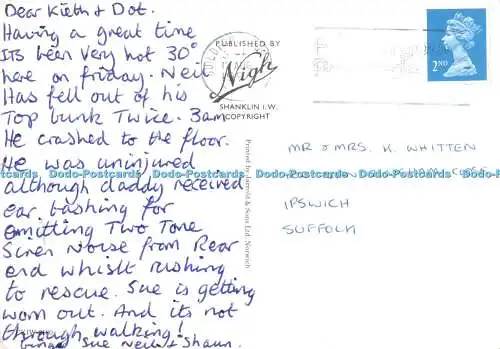 Dear Kieth & Dot.
Having a great time
Its been very hot 30°
here on friday. Neil
Has fell out of his
Top bunk Twice. 3am
He crashed to the floor.
He was uninjured
although daddy received
ear bashing for
emitting Two Tone
Siren Noise from Rear
end whislt rushing
to rescue. Sue is getting
worn out. And its not
through walking!
Sue Neil & Shaun.
PUBLISHED BY
Nigh
SHANKLIN I.W.
COPYRIGHT
Printed by Jarrold & Sons Ltd. Norwich
2ND
MR & MRS. K. WHITTEN
IPSWICH
SUFFOLK
Dodo-Postcards Dodo-Postcards Dodo-Postcards Dodo-Postcards